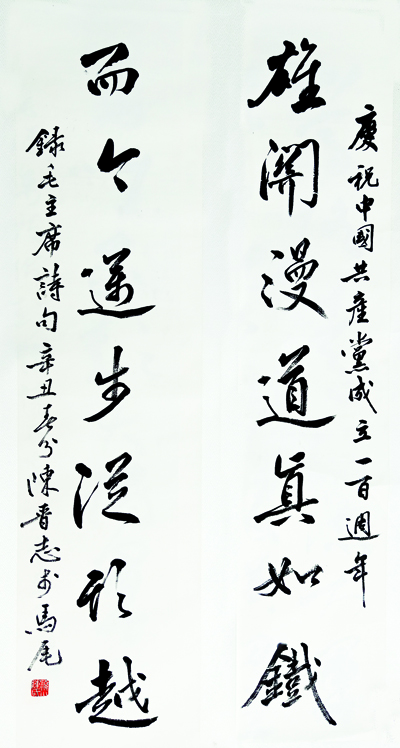 慶祝中國共產黨成立一百週年
雄關漫道真如鐵
而今邁步從頭越
錄毛主席詩句辛丑春分陳晋志於馬尾